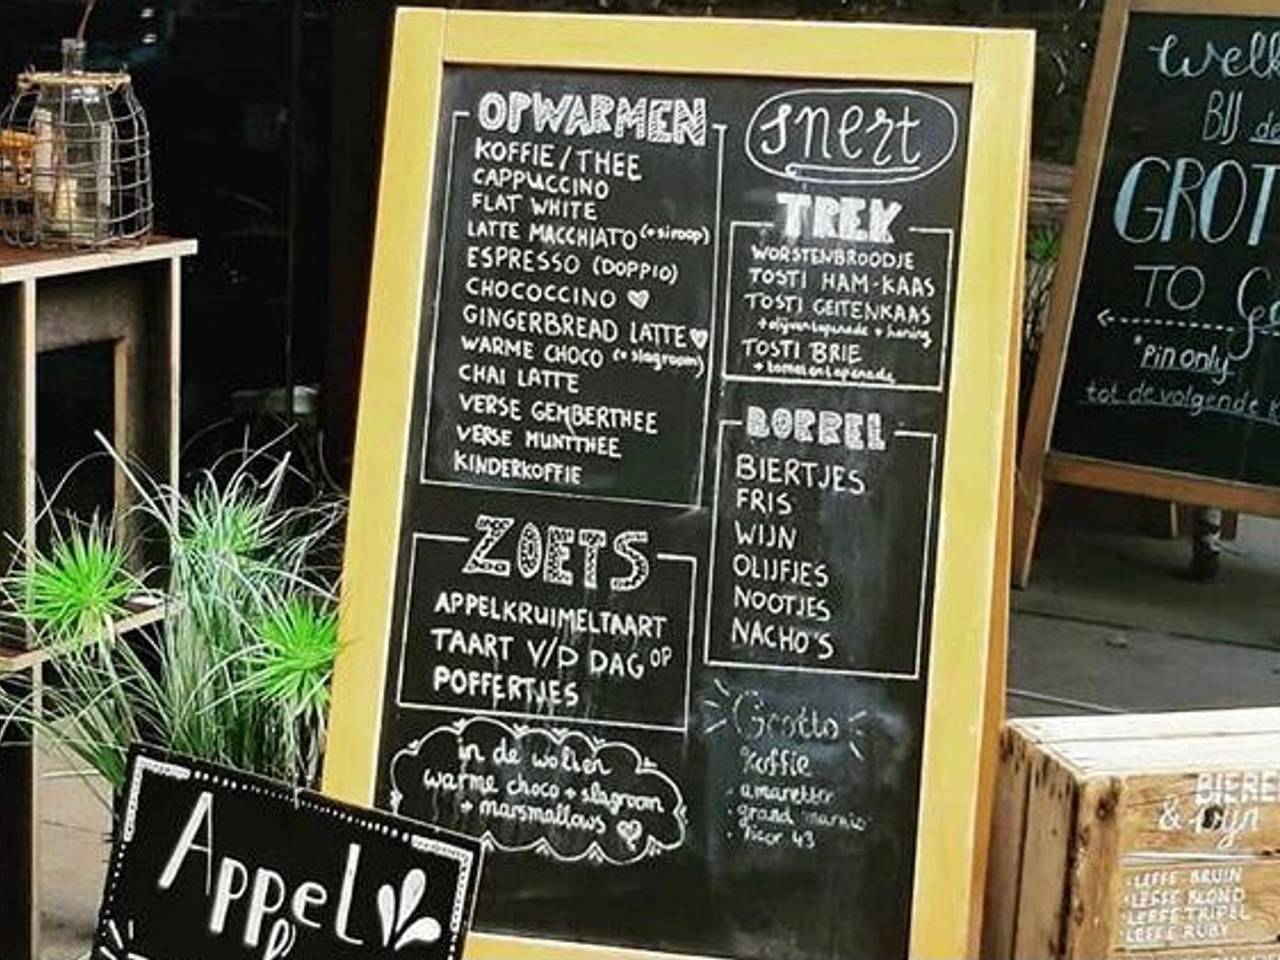 OPWARMEN
KOFFIE/THEE
CAPPUCCINO
FLAT WHITE
LATTE MACCHIATO (+siroop)
ESPRESSO (DOPPIO)
CHOCOCCINO
GINGERBREAD LATTE
WARME CHOCO (+slagroom)
CHAI LATTE
VERSE GEMBERTHEE
VERSE MUNTTHEE
KINDERKOFFIE
ZOETS
APPELKRUIMELTAART
TAART V/D DAG OP
POFFERTJES
in de wolken
warme choco + slagroom
+ marsmallows
snert
TREK
WORSTENBROODJE
TOSTI HAM-KAAS
TOSTI GEITENKAAS
+ olijventapenade + honing
TOSTI BRIE
+ tomatentapenade
BORREL
BIERTJES
FRIS
WIJN
OLIJFJES
NOOTJES
NACHO'S
Grotto
Koffie
· amaretto
· grand marnier
· licor 43
Appel
Welk
BIJ de
GROT
TO Go
*Pin only
tot de volgende
BIERE
& Wijn
·LEFFE BRUIN
·LEFFE BLOND
·LEFFE TRIPEL
·LEFFE RUBY